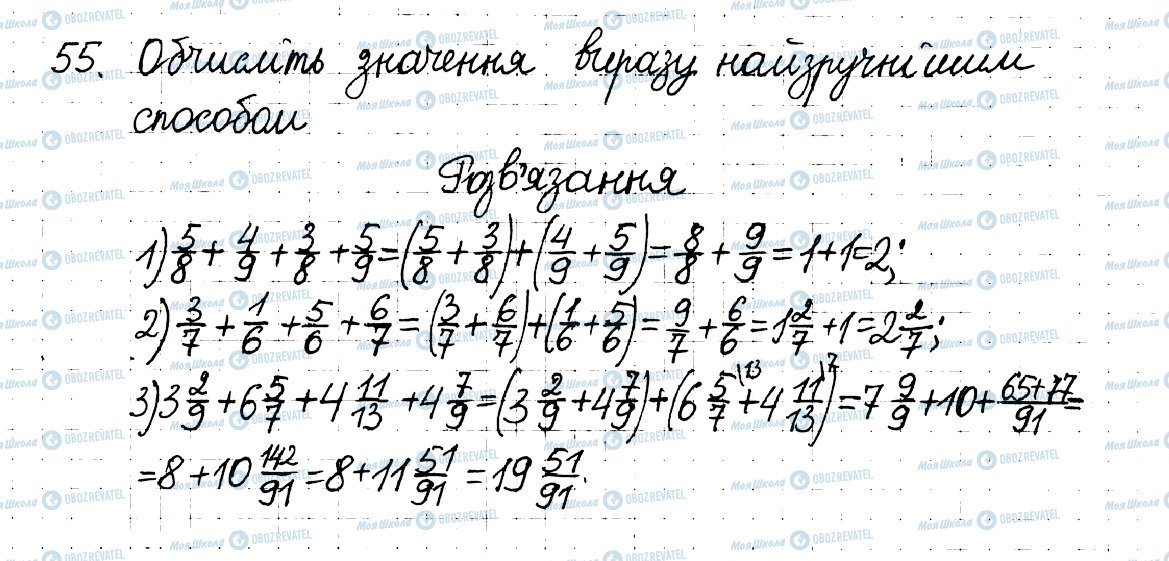 55. Обчисліть значення виразу найзручнішим
способом
Розв'язання
1) 5/8 + 4/9 + 3/8 + 5/9 = (5/8 + 3/8) + (4/9 + 5/9) = 8/8 + 9/9 = 1 + 1 = 2;
2) 3/7 + 1/6 + 5/6 + 6/7 = (3/7 + 6/7) + (1/6 + 5/6) = 9/7 + 6/6 = 1 2/7 + 1 = 2 2/7;
3) 3 2/9 + 6 5/7 + 4 11/13 + 4 7/9 = (3 2/9 + 4 7/9) + (6 5/7 \13 + 4 11/13 \7) = 7 9/9 + 10 + (65+77)/91 =
= 8 + 10 142/91 = 8 + 11 51/91 = 19 51/91.
МояШкола OBOZREVATEL